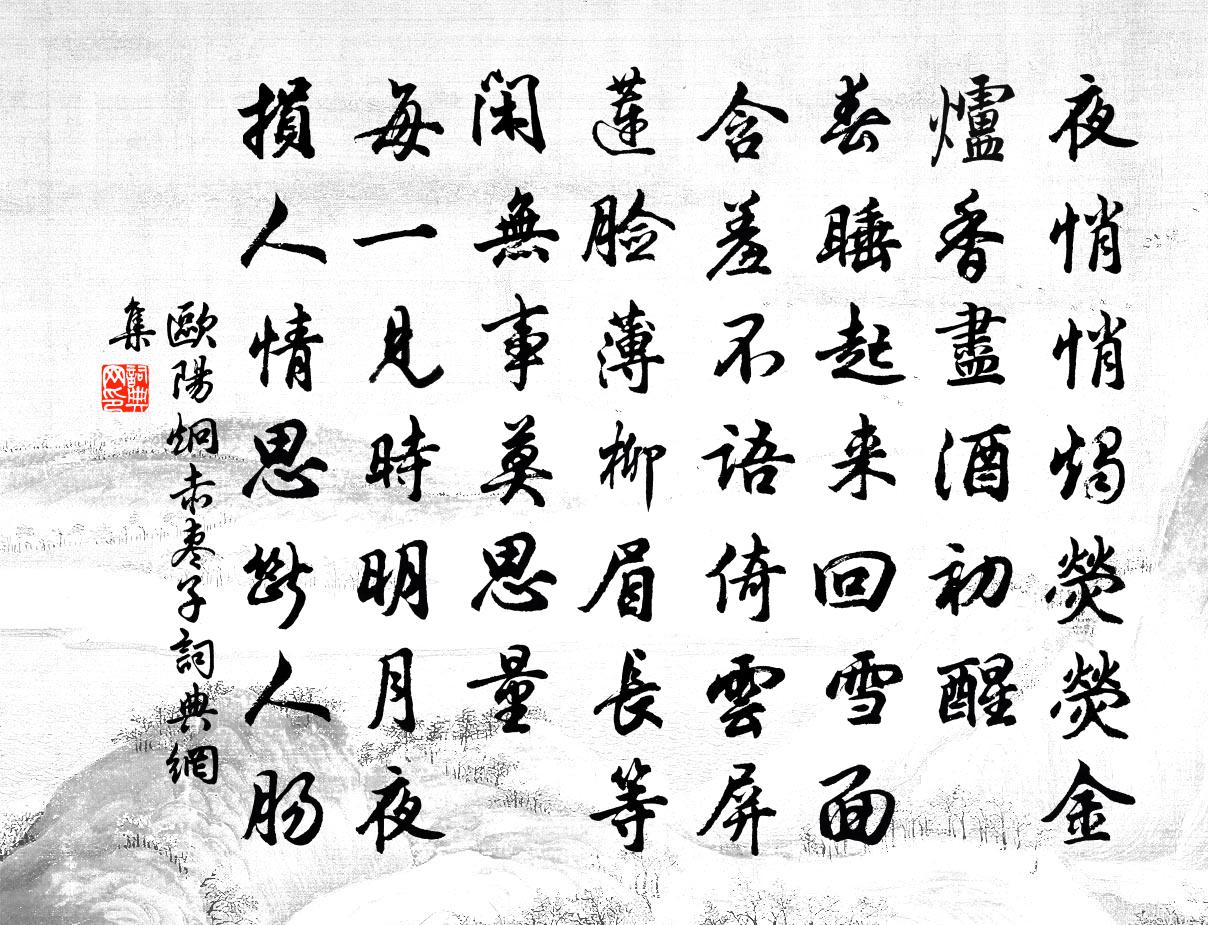 夜悄悄燭熒熒金
爐香盡酒初醒
春睡起来回雪面
含羞不語倚雲屏
蓮臉薄柳眉長等
閑無事莫思量
每一見時明月夜
損人情思斷人腸
歐陽炯赤枣子詞典網
集
詞典網印